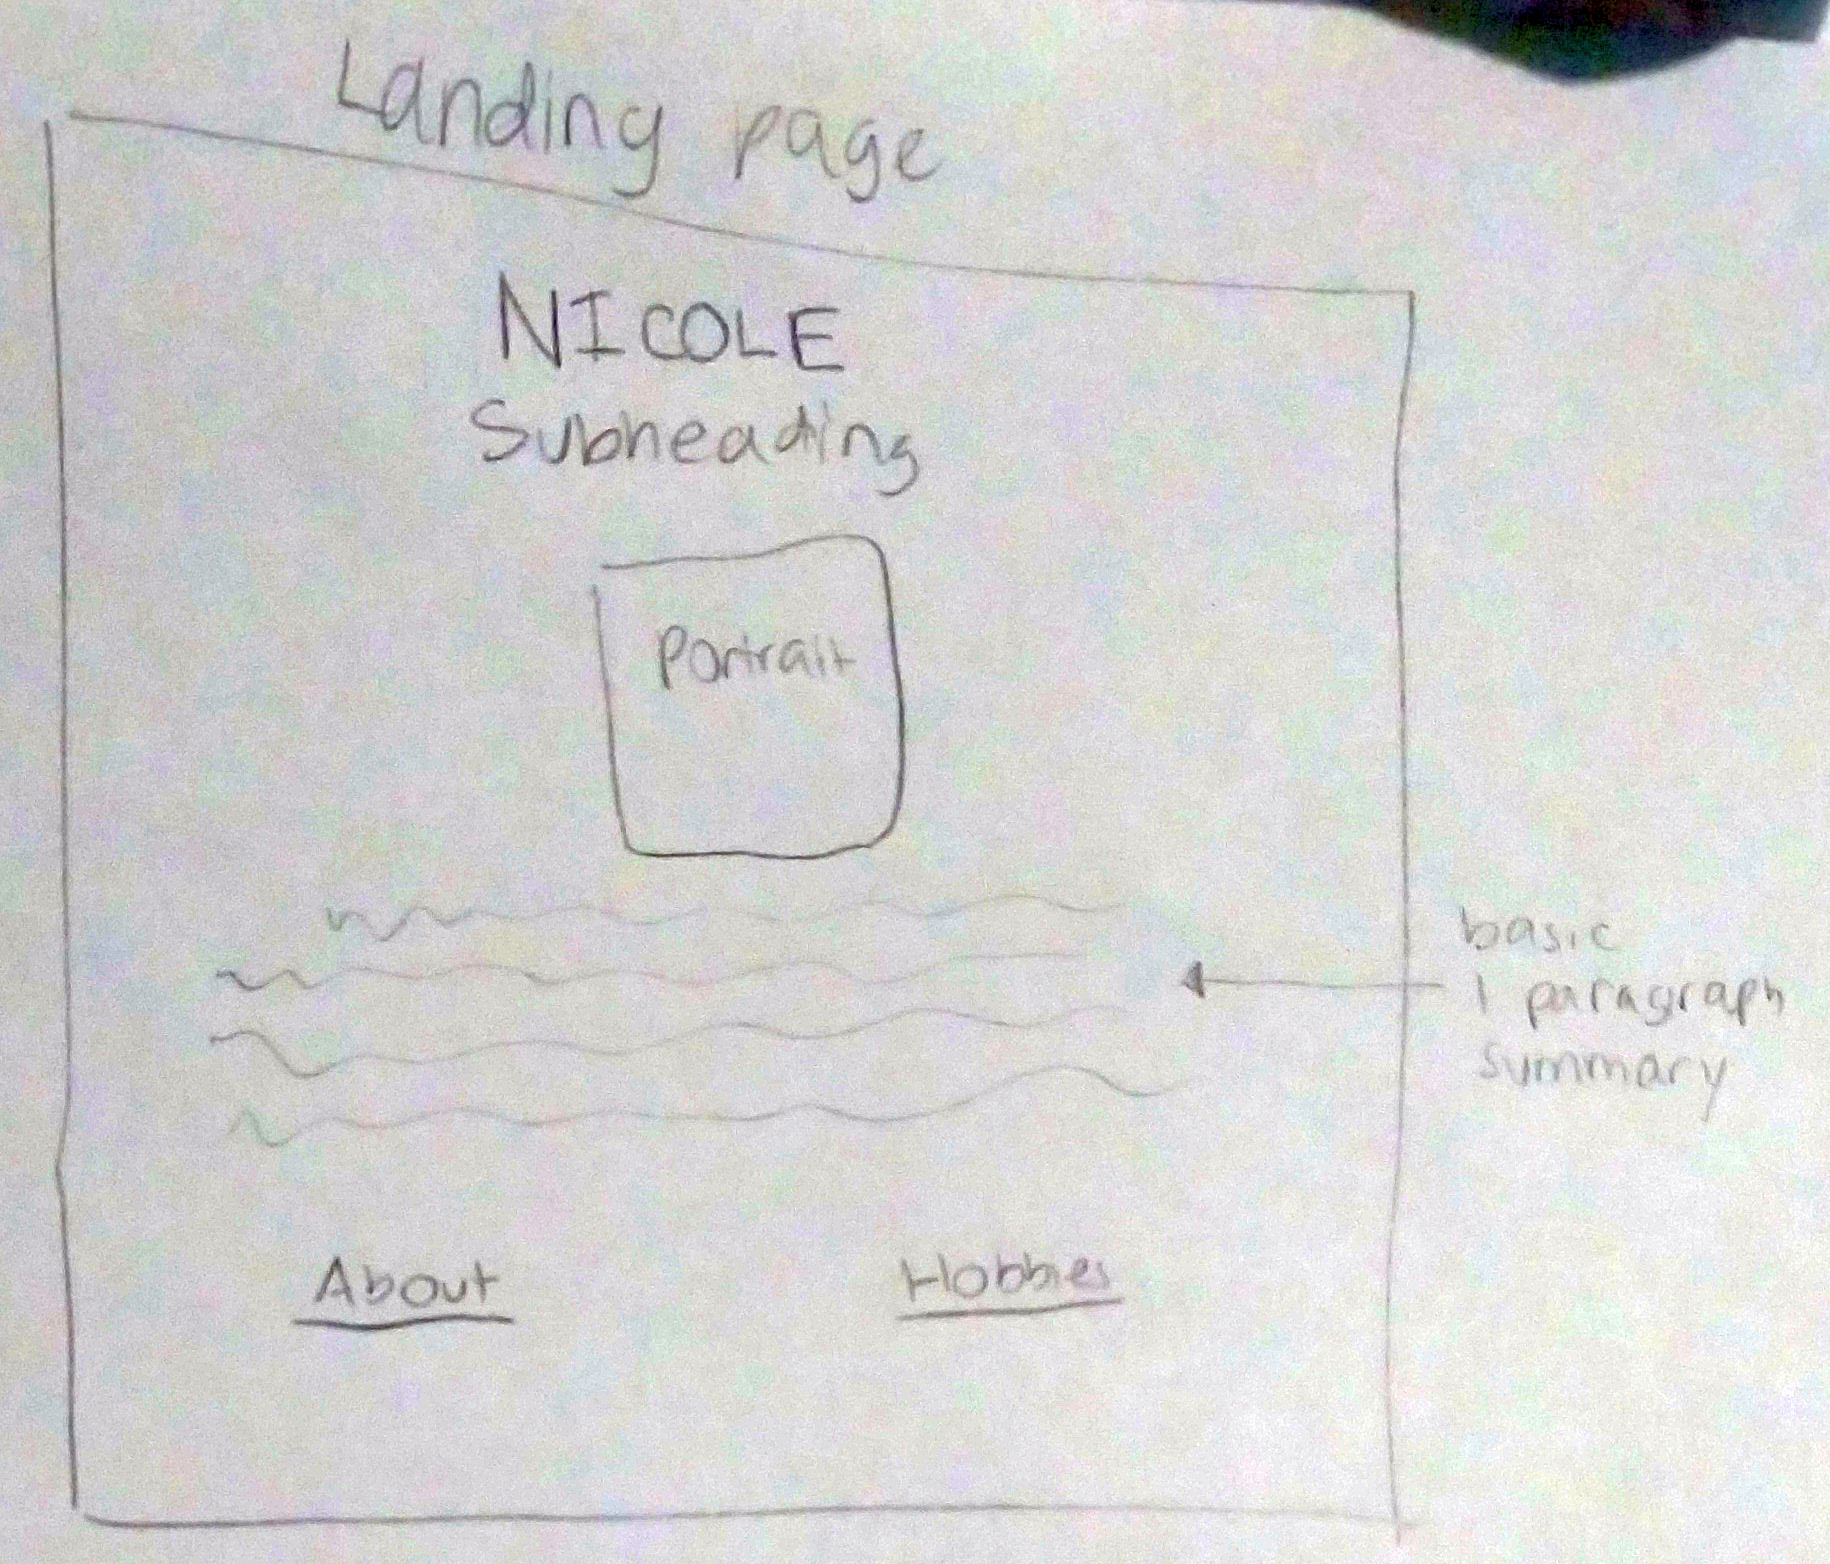 Landing page
NICOLE
Subheading
Portrait
basic
1 paragraph
summary
About
Hobbies